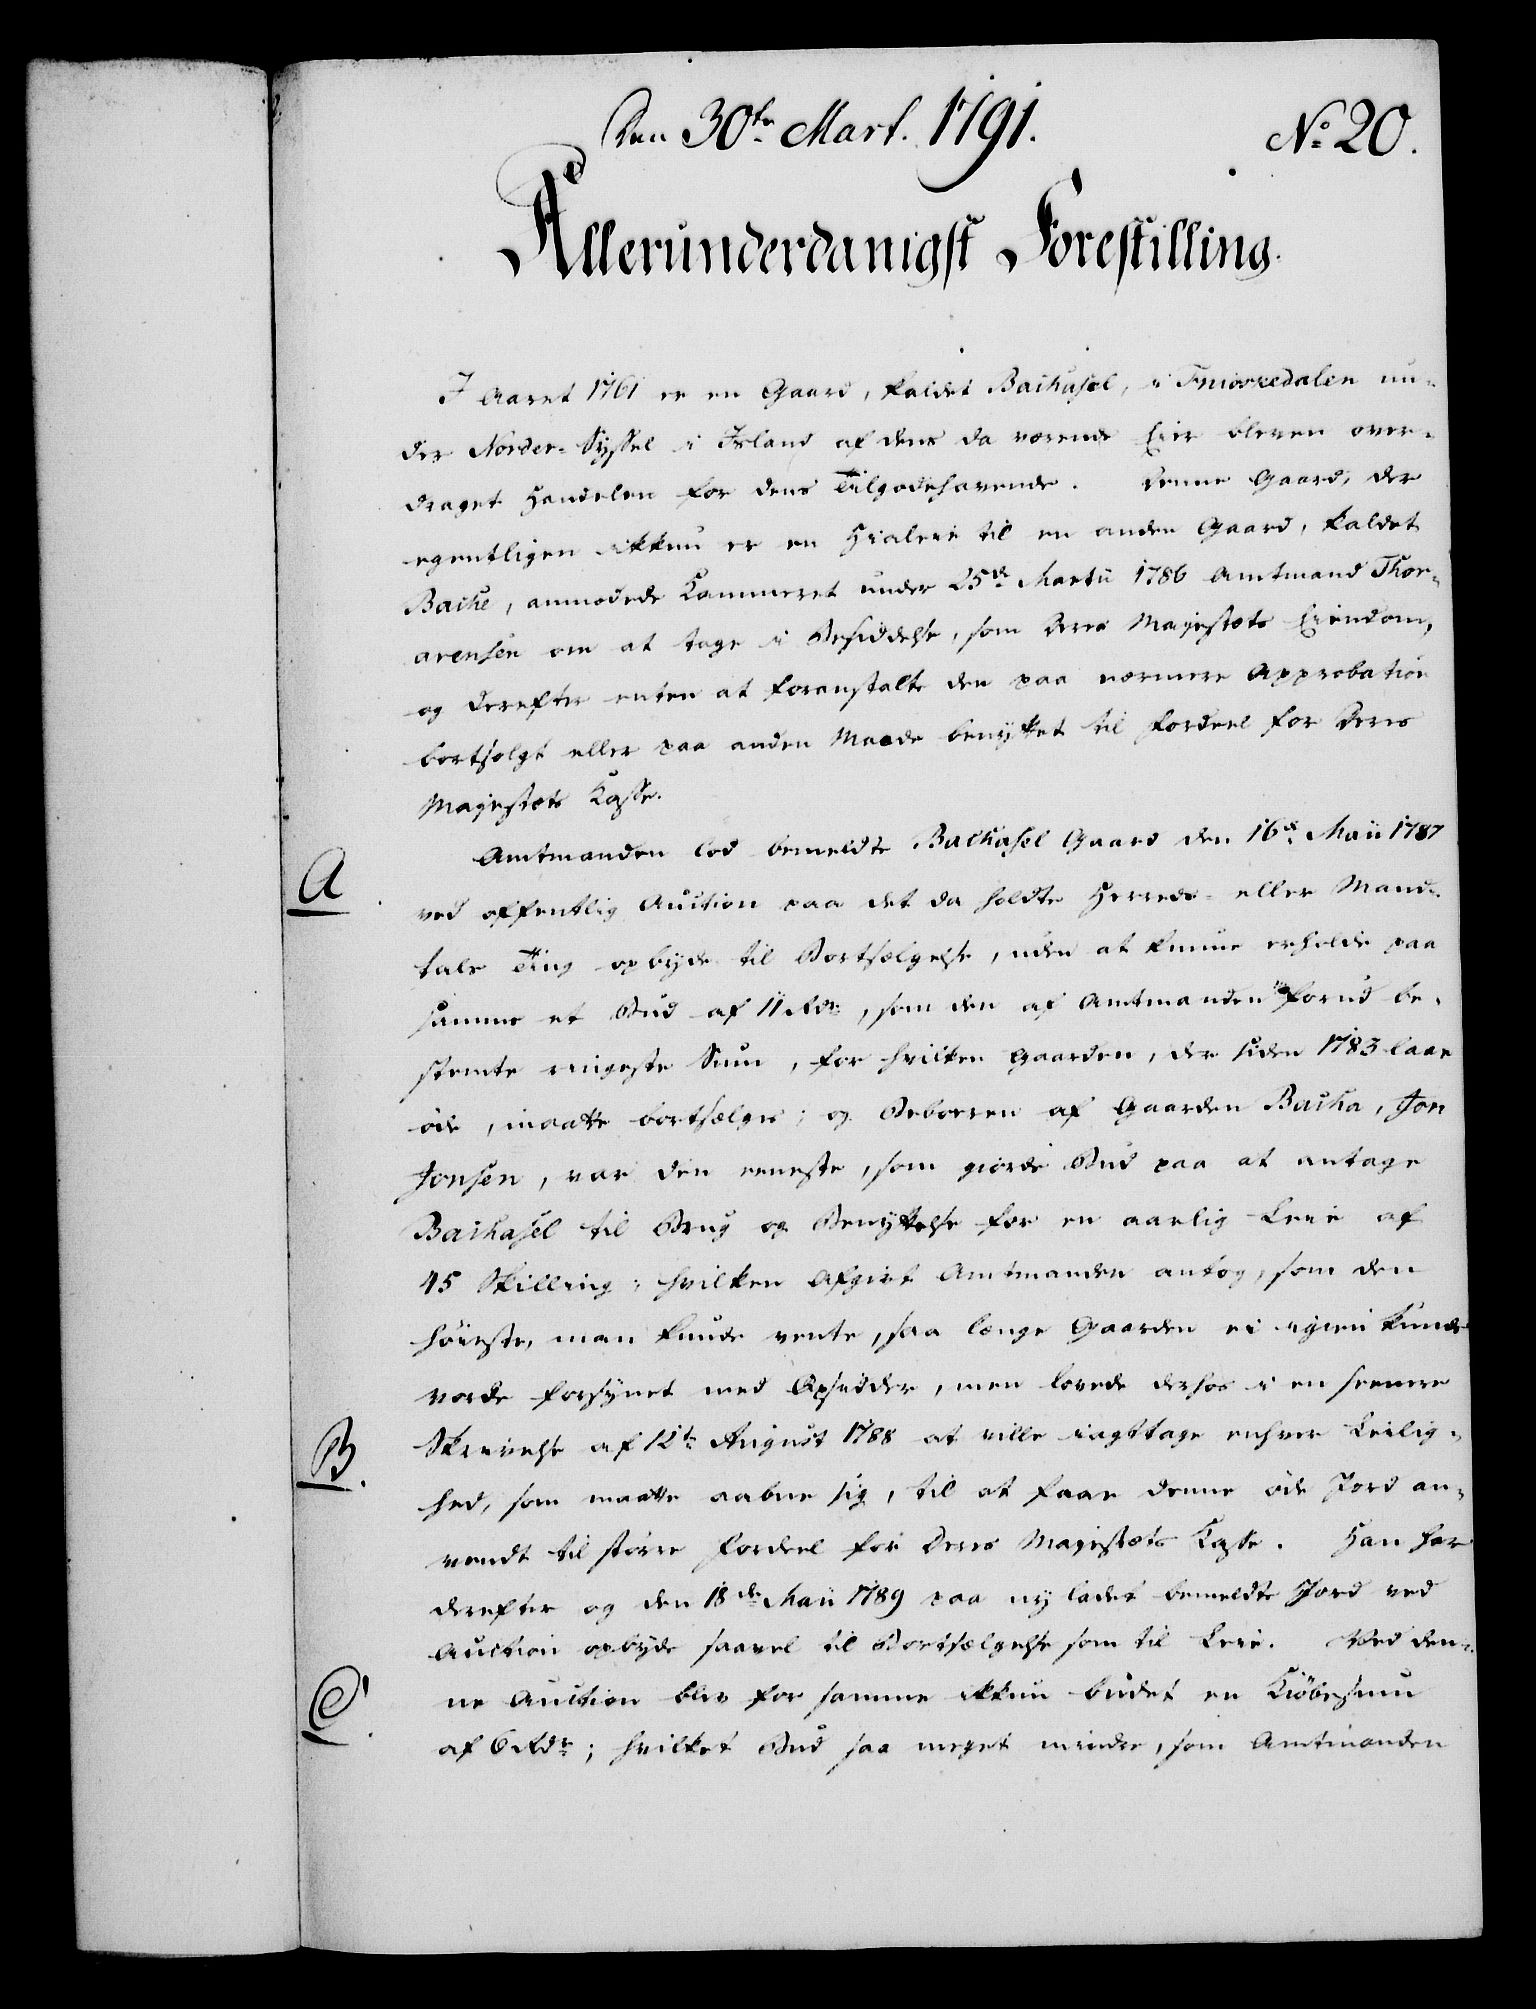 Den 30te Mart. 1791.
No 20.
Allerunderdanigst Forestilling.
I Aaret 1761 er en Gaard, kaldet Backasel, i Fnioskedalen un-
der Norder-Syssel i Island af dens da værende Eier bleven over-
draget Handelen for dens Tilgodehavende. Denne Gaard, der
egentligen ikkun er en Hialeie til en anden Gaard, kaldet
Backe, anmodede Kammeret under 25de Martii 1786 Amtmand Thor-
arensen om at tage i Besiddelse, som Deres Majestæts Eiendom,
og derefter enten at foranstalte den paa nærmere Approbation
bortsolgt eller paa anden Maade benyttet til Fordeel for Deres
Majestæts Kasse.
A
Amtmanden lod bemeldte Backasel Gaard den 16de Maii 1787
ved offentlig Auction paa det da holdte Herreds- eller Mand-
tals Ting opbyde til Bortsælgelse, uden at kunne erholde paa
samme et Bud af 11 Rdr, som den af Amtmanden forud be-
stemte ringeste Sum, for hvilken Gaarden, der siden 1783 laae
øde, maatte bortsælges; og Beboeren af Gaarden Backa, Jon
Jonsen, var den eeneste, som giorde Bud paa at antage
Backasel til Brug og Benyttelse for en aarlig Leie af
45 Skilling; hvilken Afgivt Amtmanden antog, som den
høieste, man kunde vente, saa længe Gaarden ei igien kunde
vorde forsynet med Opsidder, men lovede derhos i en senere
B.
Skrivelse af 12te August 1788 at ville iagttage enhver Leilig-
hed, som maatte aabne sig, til at faae denne øde Jord an-
vendt til større Fordeel for Deres Majestæts Kasse. Han har
derefter og den 18de Maii 1789 paa ny ladet bemeldte Jord ved
Auction opbyde saavel til Bortsælgelse som til Leie. Ved den-
C.
ne Auction blev for samme ikkun budet en Kiøbesum
af 6 Rdr; hvilket Bud saa meget mindre, som Amtmanden